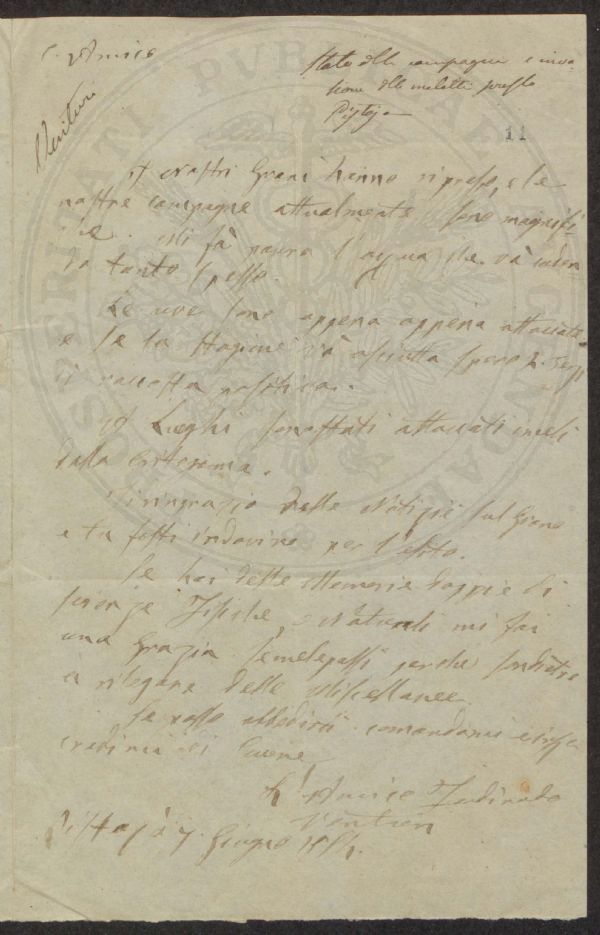 C. Amico
Stato delle campagne e inva-
sione delle malattie presso
Pistoja
Venturi
11
I nostri Grani hanno ripreso, e le
nostre campagne attualmente sono magnifi
che. mi fà paura l'acqua che và caden
do tanto spesso.
Le uve sono appena appena attaccate
e se la stagione và asciutta spero
di raccolta
I Luoghi sono stati attaccati
dalla Crittogama.
Ti ringrazio delle Notizie sul Giano
e tu fosti indovino per l'esito.
Se hai delle Memorie doppie di
scienze Fisiche, e Naturali mi fai
una Grazia se me le passi perchè son dietro
à rilegare delle Miscellanee
Se posso obbedirti comandami e
credimi di Cuore
L'Amico Ferdinando
Venturi
Pistoja 7. Giugno 1854.
PROSPERITATI PUBLICAE AUGENDAE